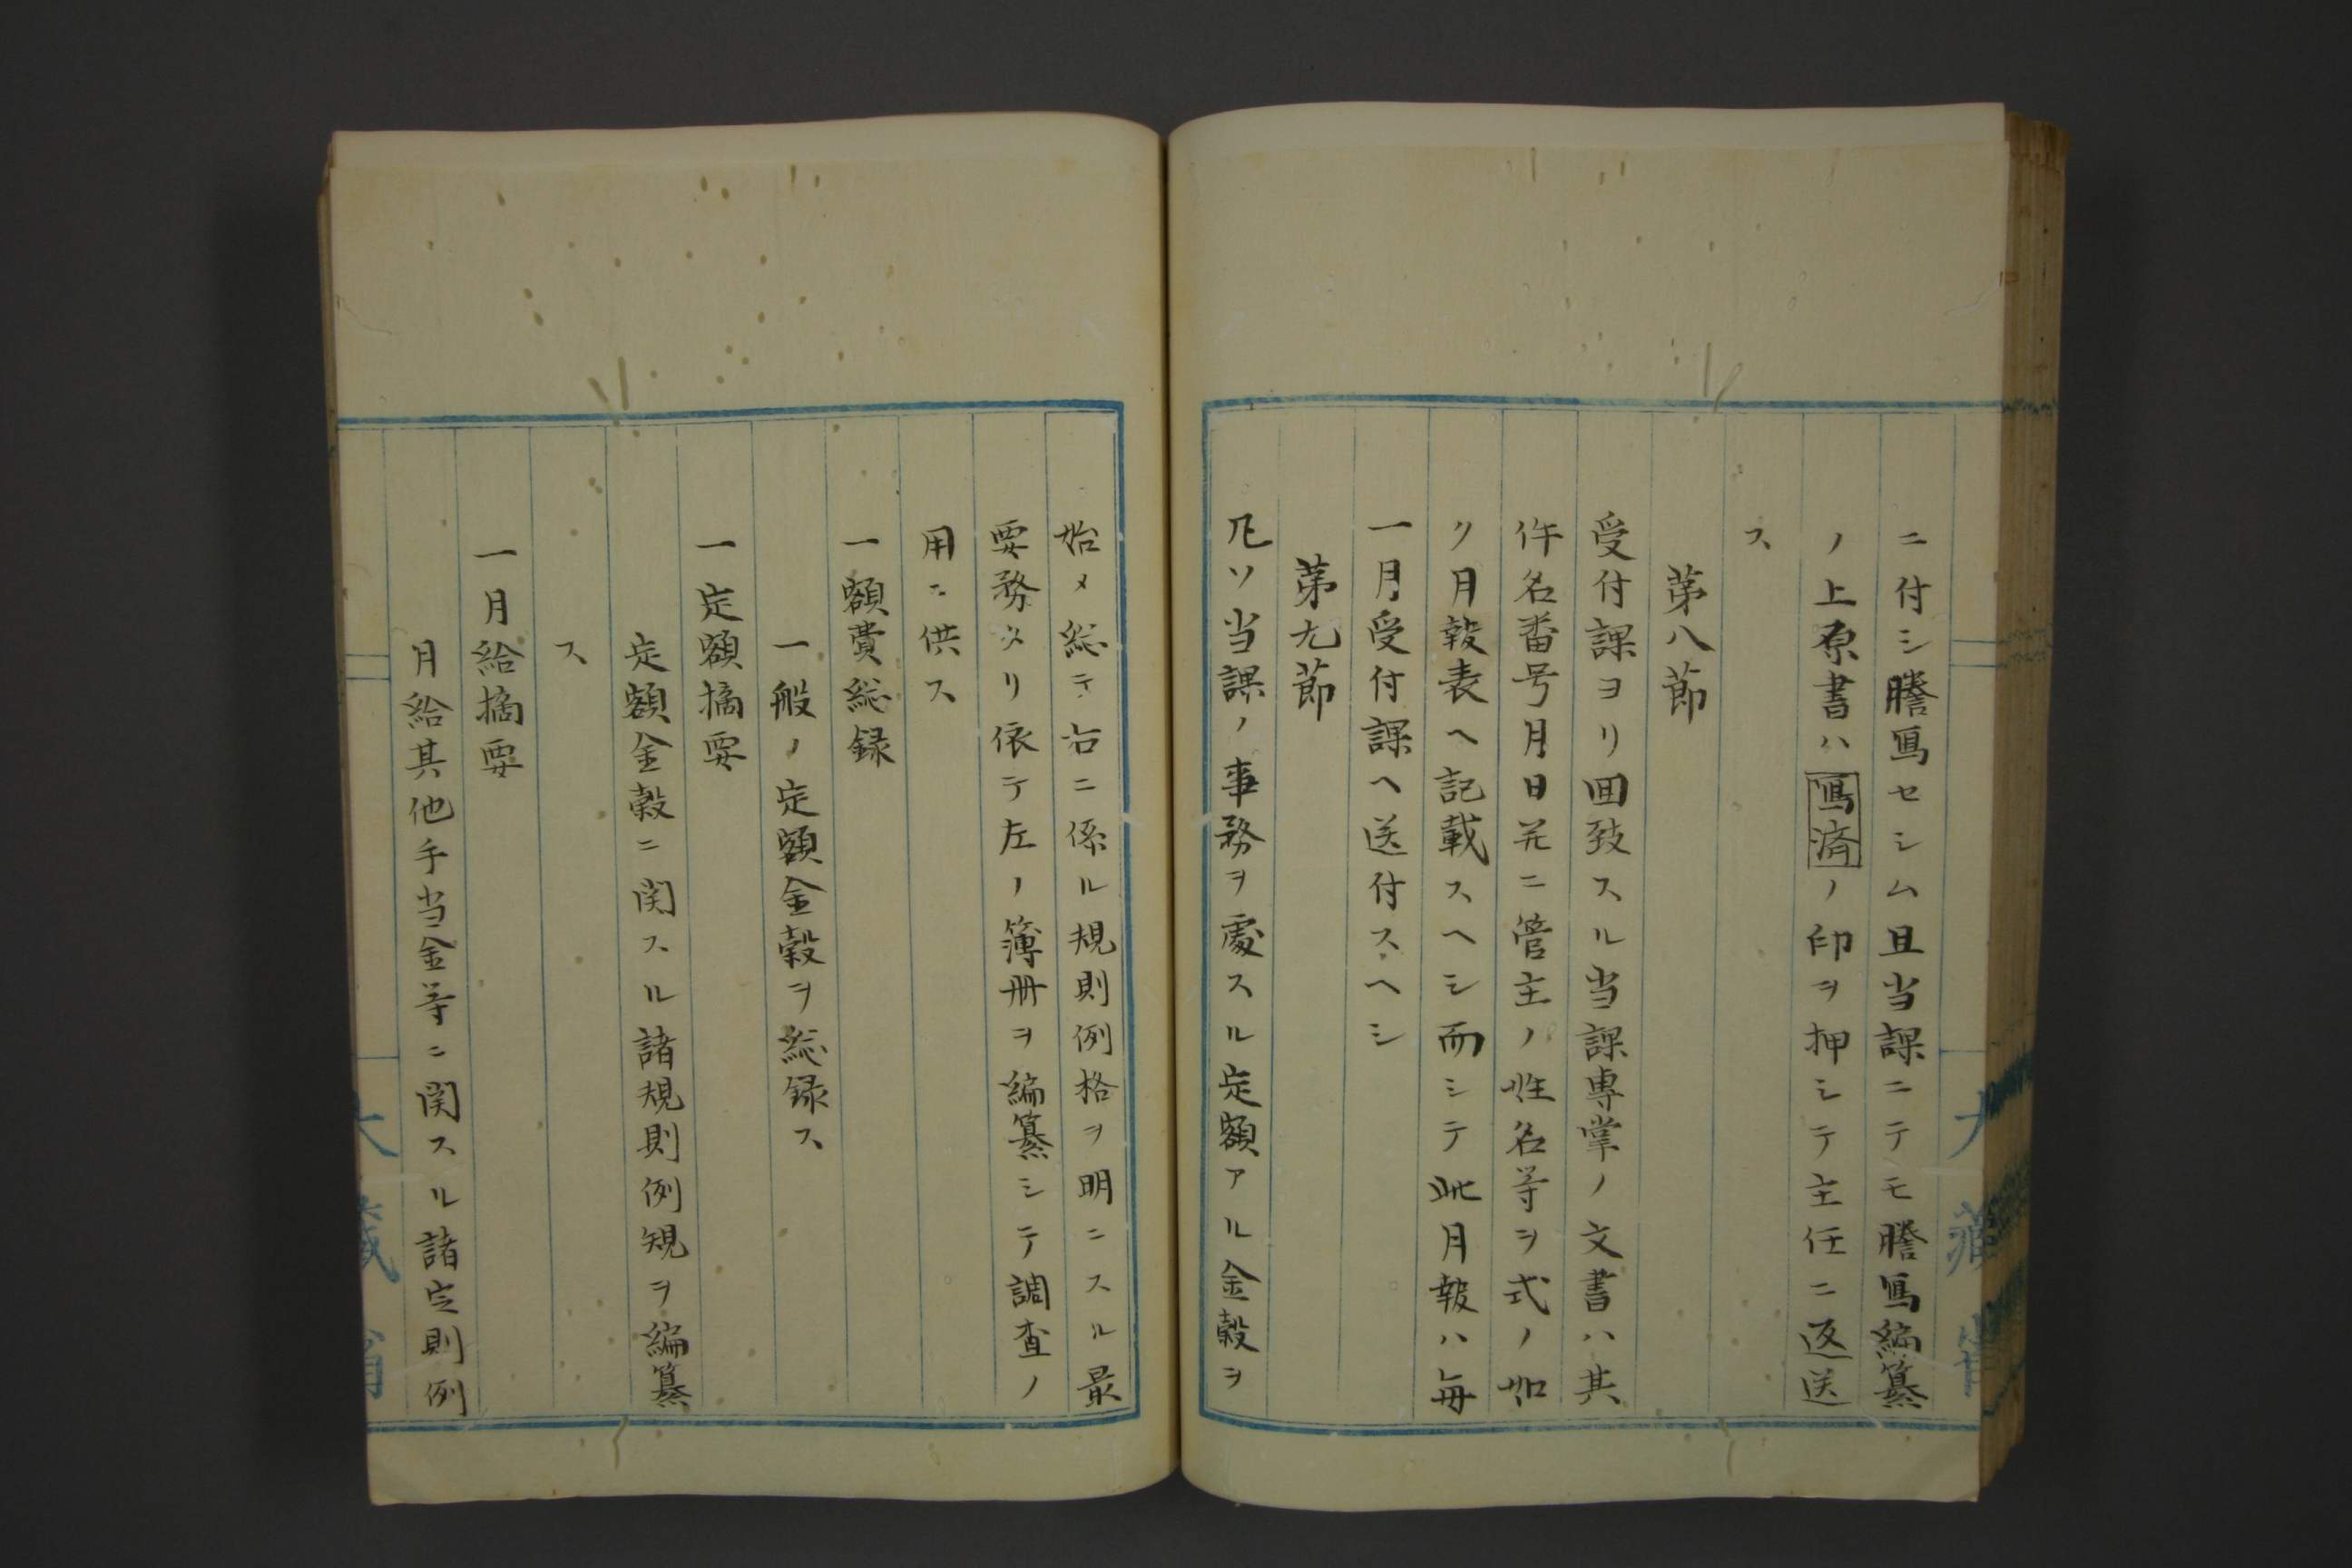 ニ付シ謄寫セシム且当課ニテモ謄寫編纂
ノ上原書ハ寫済ノ印ヲ押シテ主任ニ返送
ス
第八節
受付課ヨリ回致スル当課専掌ノ文書ハ其
件名番号月日并ニ管主ノ姓名等ヲ式ノ如
ク月報表ヘ記載スヘシ而シテ此月報ハ毎
一月受付課ヘ送付スヘシ
第九節
凡ソ当課ノ事務ヲ處スル定額アル金穀ヲ
始メ総テ右ニ係ル規則例格ヲ明ニスル最
要務タリ依テ左ノ簿冊ヲ編纂シテ調査ノ
用ニ供ス
一額費総録
一般ノ定額金穀ヲ総録ス
一定額摘要
定額金穀ニ関スル諸規則例規ヲ編纂
ス
一月給摘要
月給其他手当金等ニ関スル諸定則例
大藏省
大藏省